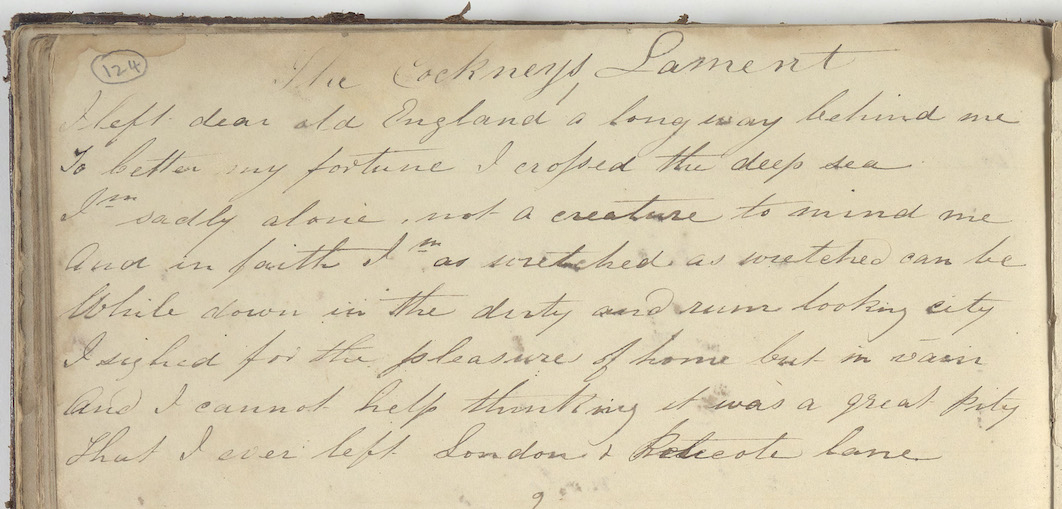 124
The Cockneys Lament
I left dear old England a long way behind me
To better my fortune I crossed the deep sea
I'm sadly alone, not a creature to mind me
And in faith I'm as wretched as wretched can be
While down in the dirty and rum looking city
I sighed for the pleasures of home but in vain
And I cannot help thinking it was a great pity
That I ever left London & Peticote lane
2